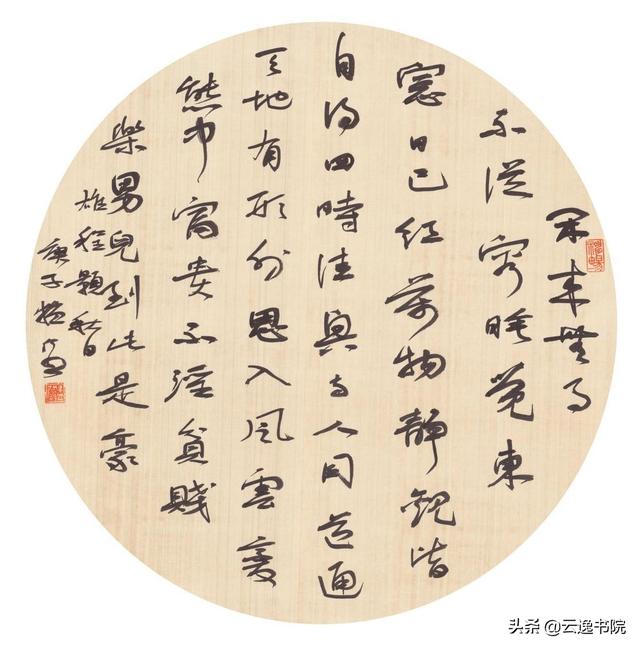 闲来無事
不從容睡覺東
窓日已红萬物靜觀皆
自得四時佳興与人同道通
天地有形外思入風雲變
態中富貴不淫貧賤
樂男兒到此是豪
雄程顥秋日
庚子
头条 @云逸书院